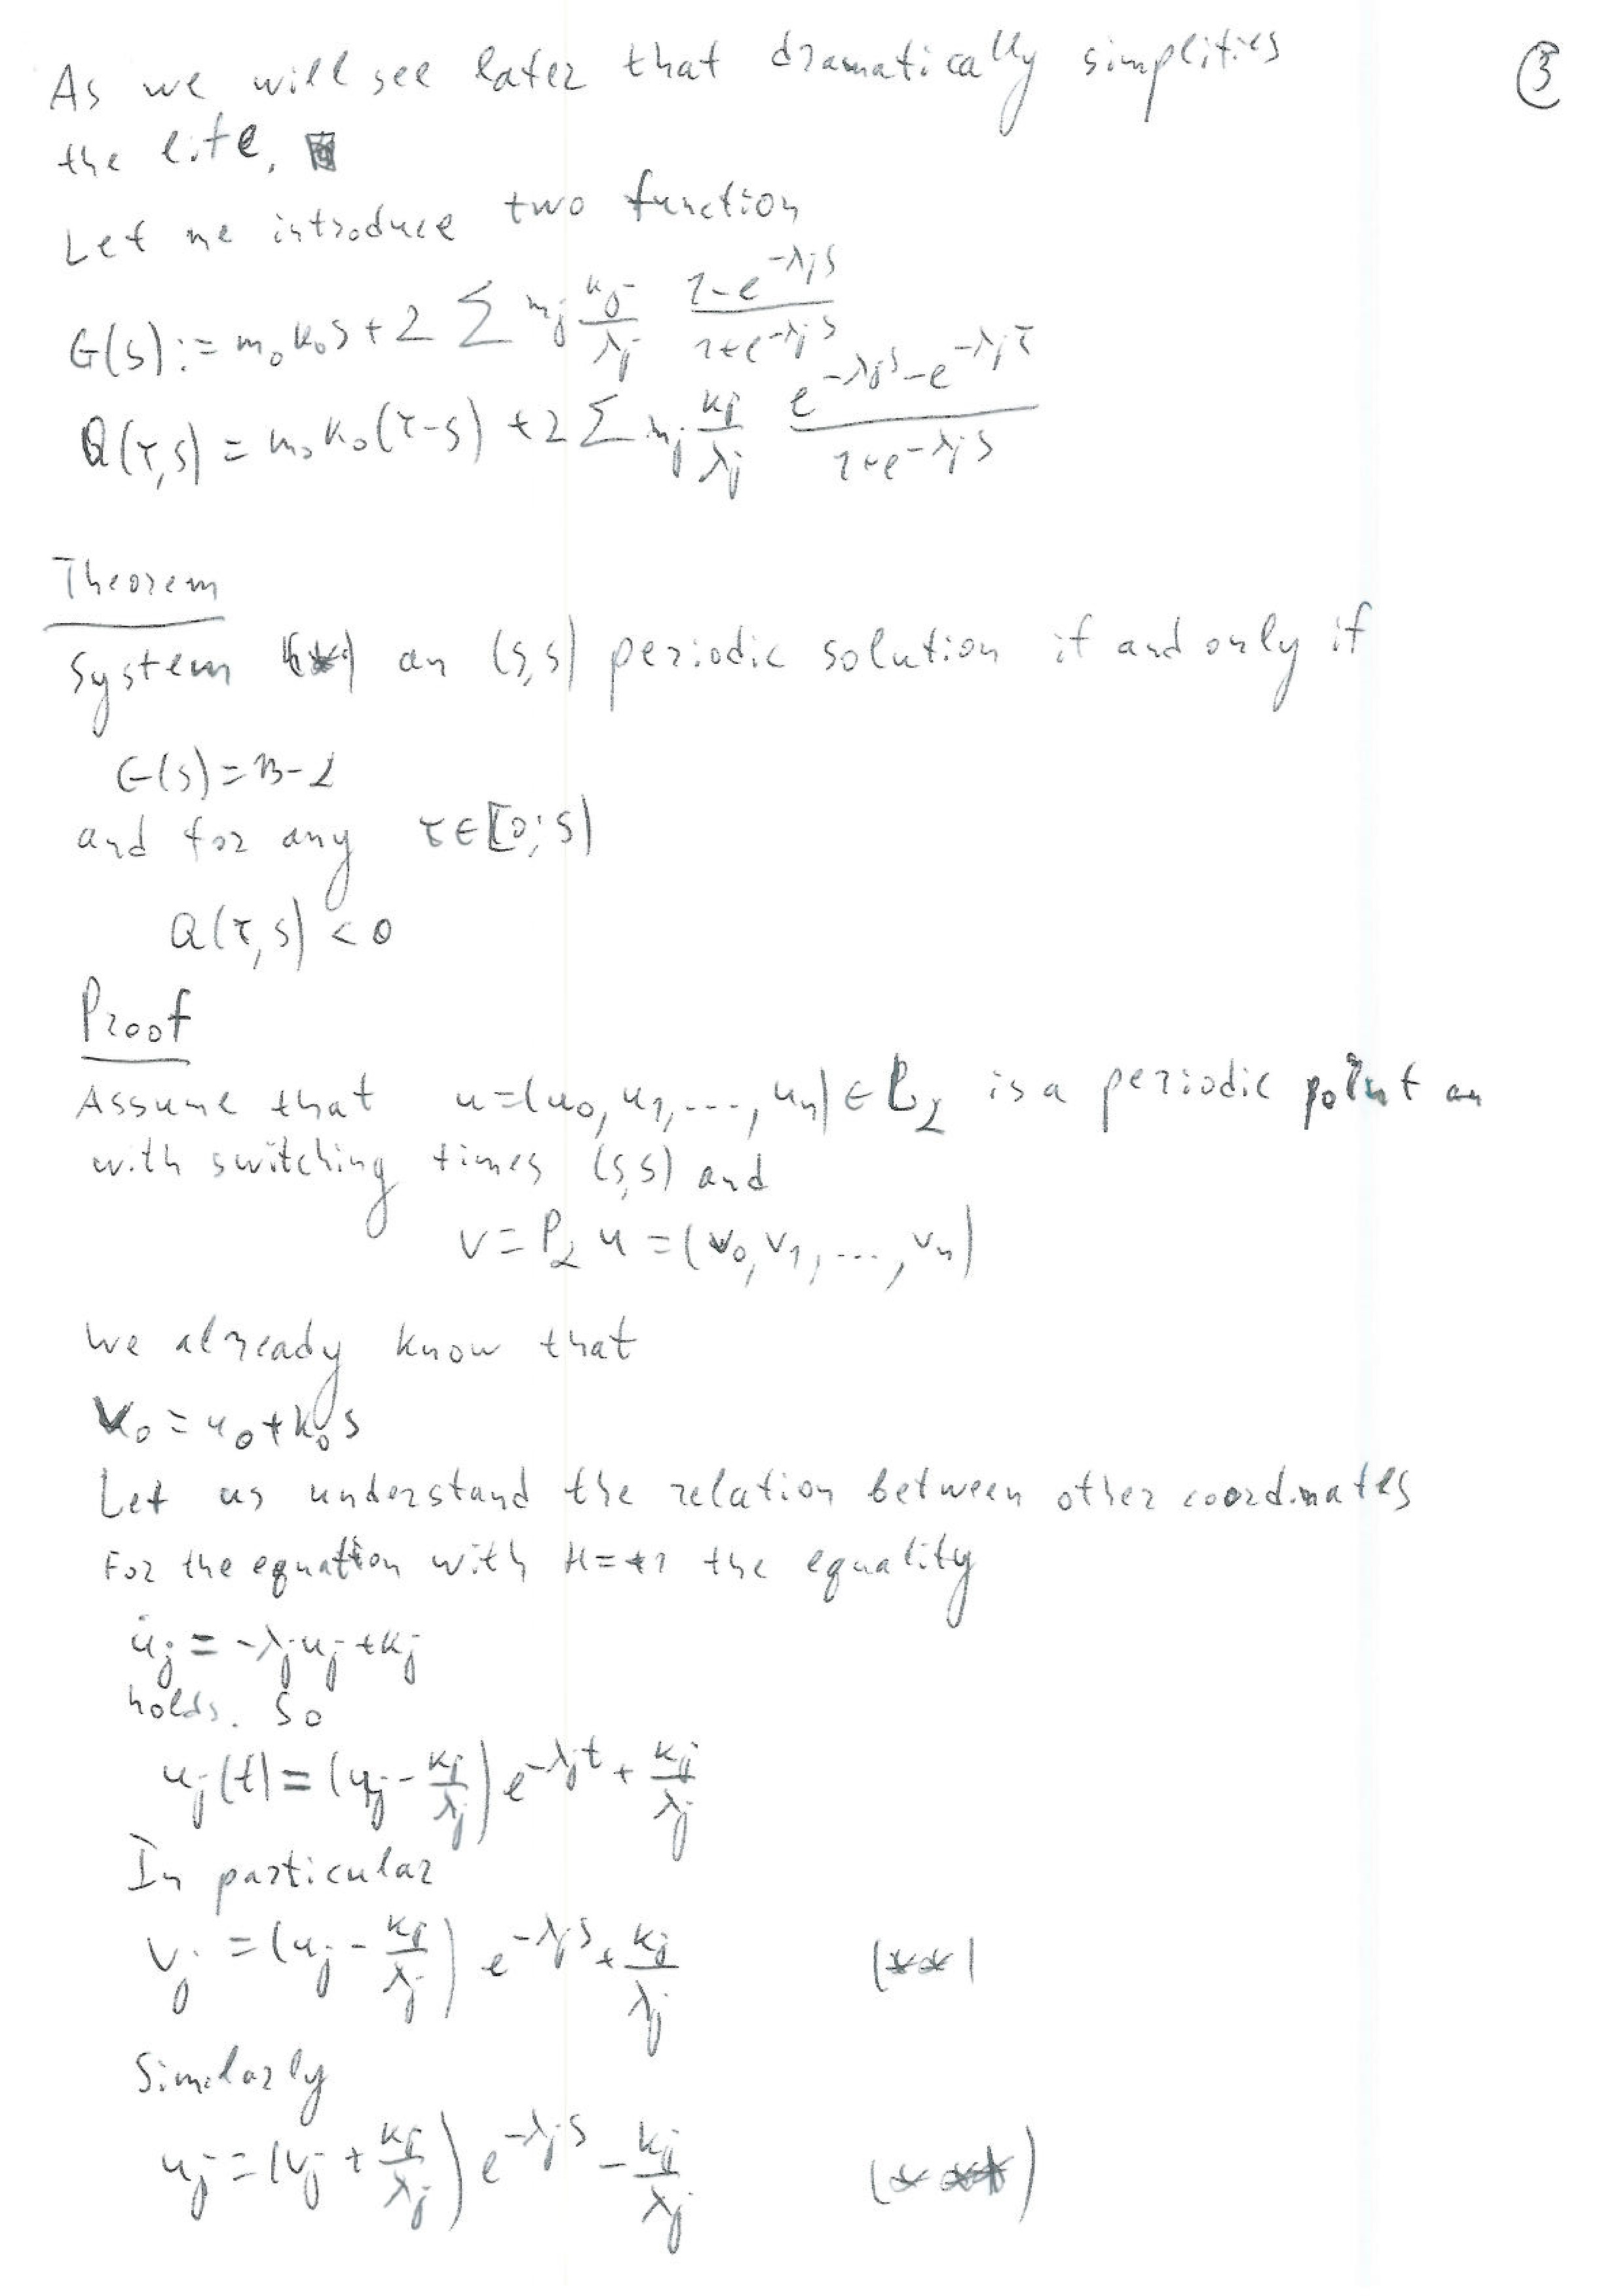 As we will see later that dramatically simplifies
③
the life.
Let me introduce two function
G(s) := m₀k₀s + 2 ∑ mⱼ kⱼ/λⱼ (1-e^{-λⱼs})/(1+e^{-λⱼs})
Q(τ,s) = m₀k₀(τ-s) + 2 ∑ mⱼ kⱼ/λⱼ (e^{-λⱼs}-e^{-λⱼτ})/(1+e^{-λⱼs})
Theorem
System (*) an (s,s) periodic solution if and only if
G(s) = β-α
and for any τ∈[0;s)
Q(τ,s) < 0
Proof
Assume that u=(u₀,u₁,...,uₙ) ∈ is a periodic point an
with switching times (s,s) and
v = P_α u = (v₀,v₁,...,vₙ)
we already know that
v₀ = u₀+k₀s
Let us understand the relation between other coordinates
For the equation with H=+1 the equality
u̇ⱼ = -λⱼuⱼ+kⱼ
holds. So
uⱼ(t) = (uⱼ - kⱼ/λⱼ) e^{-λⱼt} + kⱼ/λⱼ
In particular
vⱼ = (uⱼ - kⱼ/λⱼ) e^{-λⱼs} + kⱼ/λⱼ (**)
Similarly
uⱼ = (vⱼ + kⱼ/λⱼ) e^{-λⱼs} - kⱼ/λⱼ (***)